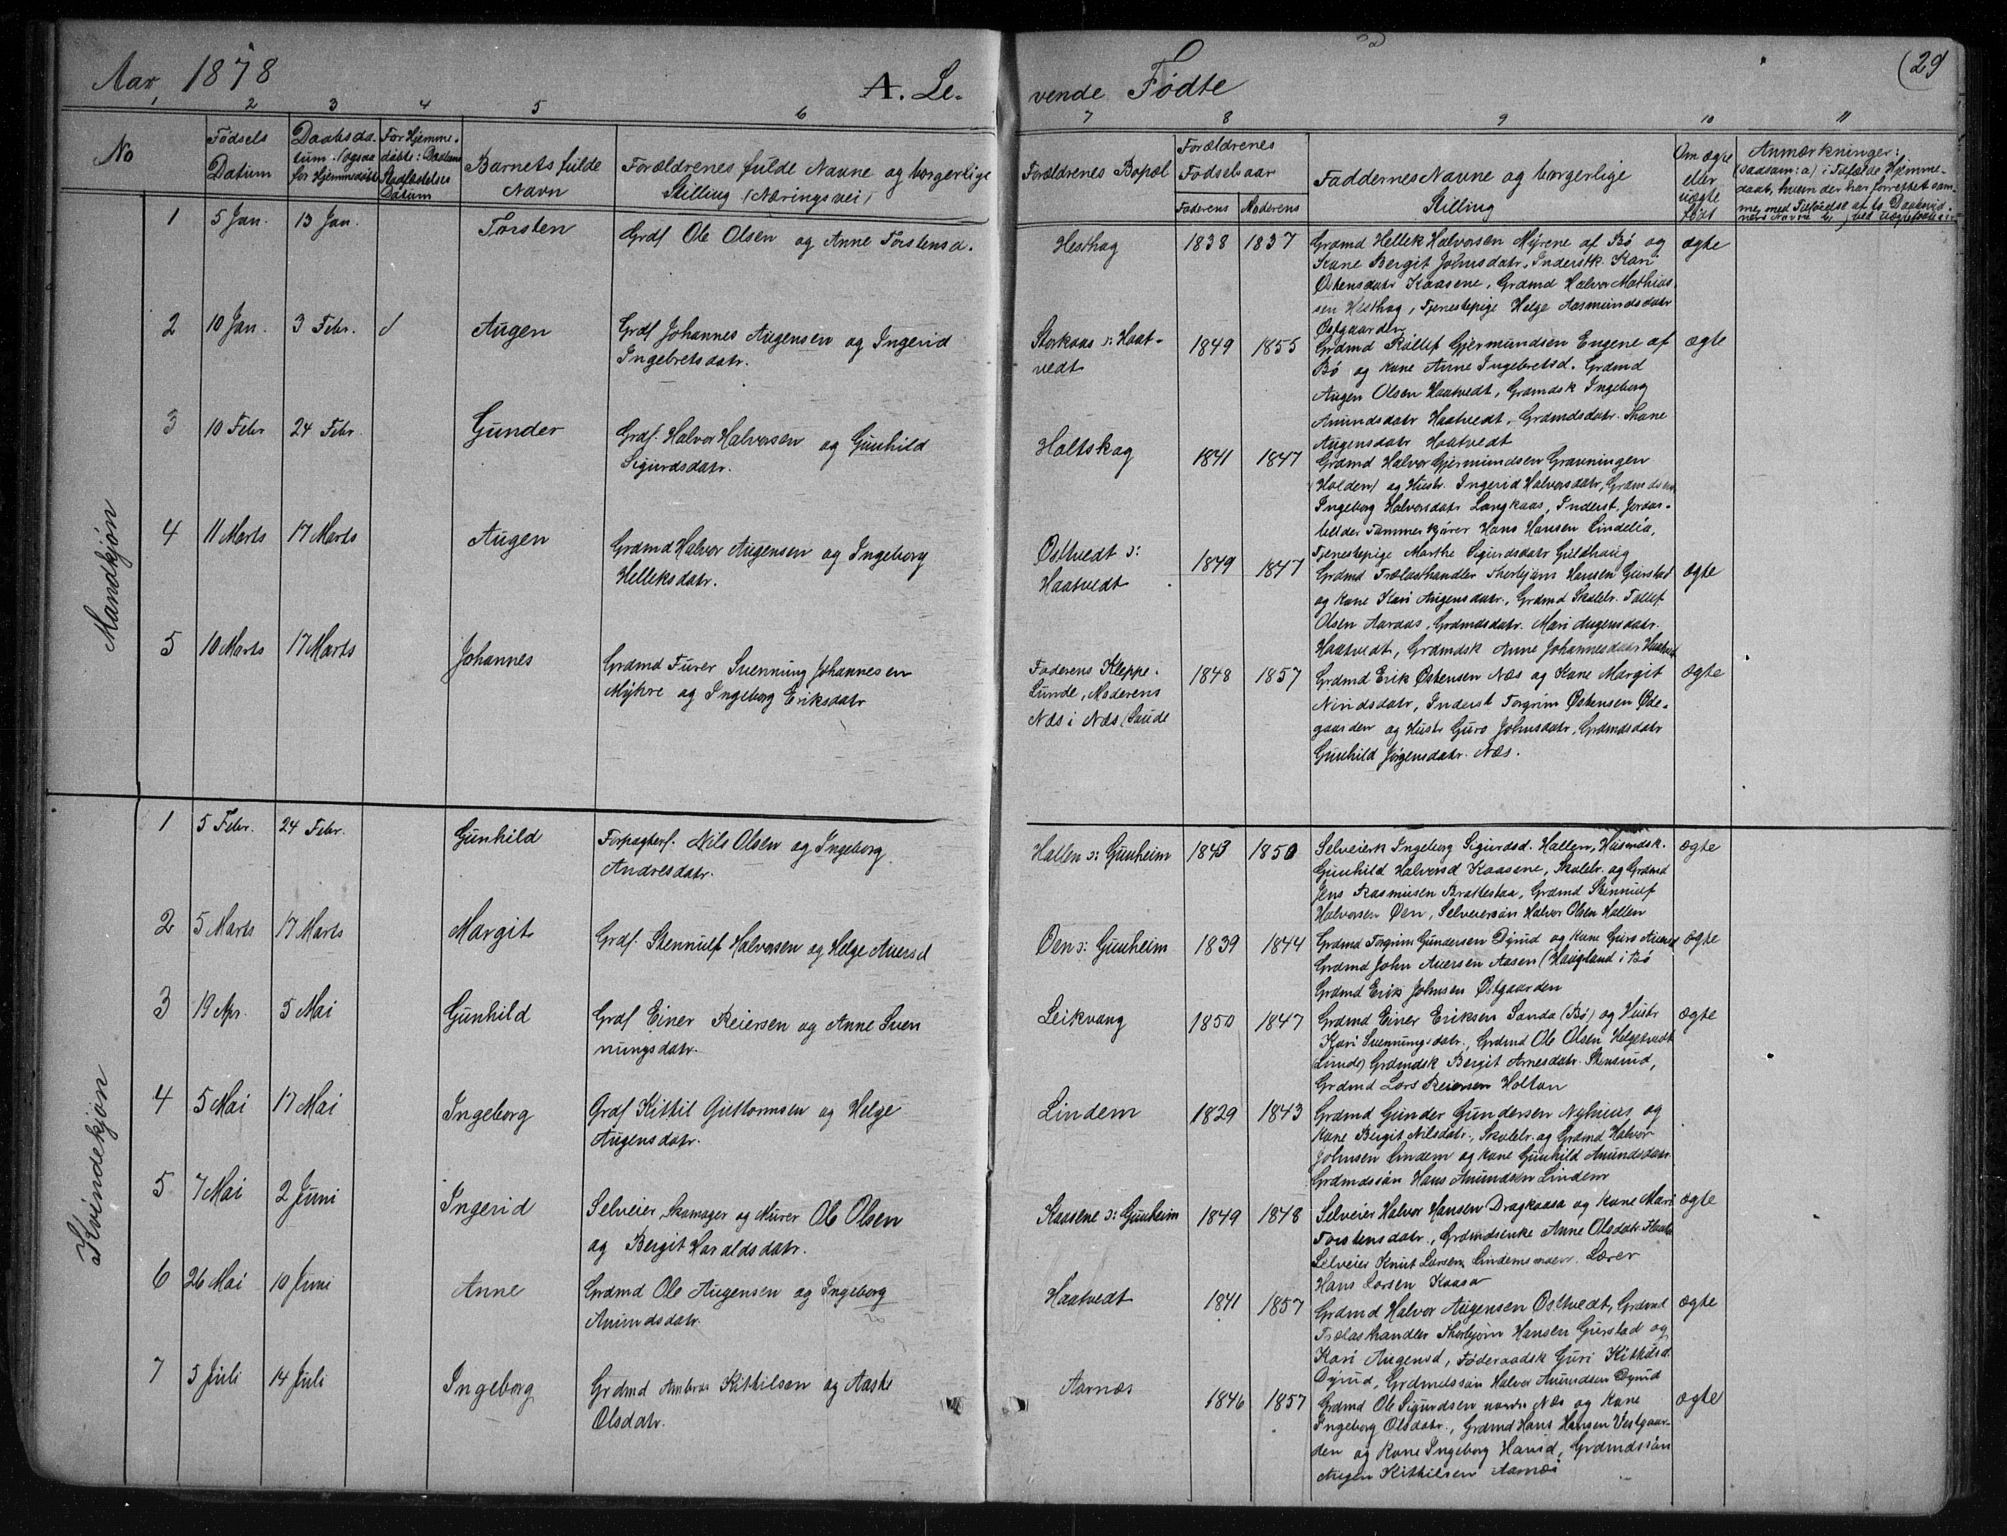 Aar, 1878
A. Le-
vende Fødte
(29
2 3 4 5 6 7 8 9 10 11
No
Fødsels
Datum
Daabsda-
tum. Ogsaa
for Hjemmedøbte
For Hjemme-
døbte: Daabens
Stadfæstelses
Datum
Barnets fulde
Navn
Forældrenes fulde Navne og borgerlige
Stilling (Næringsvei)
Forældrenes Bopæl
Forældrenes
Fødselsaar
Faderens Moderens
Faddernes Navne og borgerlige
Stilling
Om ægte
eller
uægte
født
Anmærkninger:
(saasom: a) i Tilfælde Hjemme-
daab, hvem der har forrettet sam-
me, med Tilføielse af to Daabsvid-
Mandkjøn
1 5 Jan. 13 Jan. Torsten
Grdf Ole Olsen og Anne Torstensd.
Hesthag 1838 1837
Grdmd Hellek Halvorsen Myrene af Bø og
Kone Bergit Johnsdatr, Inderstk. Kari
Østensdatr Kaasene, Grdmd Halvor Mathias
sen Hesthag, Tjenestepige Helge Aasmundsdatr
Østgaarden
ægte
2 10 Jan. 3 Febr. d Augen
Grdf Johannes Augensen og Ingerid
Ingebretsdatr.
Storkaas ɔ: Haat-
vedt
1849 1855
Grdmd Rollef Gjermundsen Eugene af
Bø og Kone Anne Ingebretsd. Grdmd
Augen Olsen Haatvedt, Grdmdsk Ingeborg
Amundsdatr Haatvedt, Grdmdsdatr. Thone
Augensdatr Haatvedt
ægte
3 10 Febr 24 Febr. Gunder
Grdf. Halvor Halvorsen og Gunhild
Sigurdsdatr.
Holtskog 1841 1847
Grdmd Halvor Gjermundsen Gravningen
(Holden) og Hustr. Ingerid Halvorsdatr, Grdmdsk
Ingeborg Halvorsdatr Langkaas, Inderst, Jordar-
beider Tømmerkjører Hans Hansen Lindelia,
Tjenestepige Marthe Sigurdsdatr Guldhaug
4 11 Marts 17 Marts Augen
Grdmd Halvor Augensen og Ingeborg
Helleksdatr.
Østtvedt ɔ:
Haatvedt
1849 1847
Grdmd Trælasthandler Thorbjørn Hansen Gierstad
og Kone Kari Augensdatr, Grdmd Skolelr. Tollef
Olsen Aaraas, Grdmdsdatr. Mari Augensdatr.
Haatvedt, Grdmdsk Anne Johannesdatr Haatvedt
ægte
5 10 Marts 17 Marts Johannes
Grdmd Furer Svennung Johannesen
Myhre og Ingeborg Eriksdatr
Faderens Kleppe-
Lunde, Moderens
Næs i Næs (Saude
1848 1857
Grdmd Erik Østensen Næs og Kone Margit
Niridsdatr, Inderst Torgrim Østensen Øde-
gaarden og Hustr Guro Johnsdatr, Grdmdsdatr
Gunhild Jørgensdatr. Næs.
ægte
Kvindekjøn
1 5 Febr. 24 Febr. Gunhild
Forpagterf. Nils Olsen og Ingeborg
Andresdatr.
Hallen ɔ: Gunheim 1843 1850
Selveierk Ingeborg Sigurdsd. Hallen, Husmdsk.
Gunhild Halvorsd Kaasene, Skolelr. og Grdmd
Jens Rasmusen Brattestaa, Grdmd Stennulf
Halvorsen Øen, Selveiersøn Halvor Olsen Hallen
ægte
2 5 Marts 17 Marts Margit
Grdf. Stennulf Halvorsen og Helge Auersd
Øen ɔ: Gunheim 1839 1844
Grdmd Torgrim Gundersen Dyrud og Kone Guro Auersd
Grdmd John Auersen Aasen (Haugland i Bø
Grdmd Erik Johnsen Østgaarden
ægte
3 19 Apr. 5 Mai Gunhild
Grdf Einer Reiersen og Anne Sven
nungsdatr.
Leikvang 1850 1847
Grdmd Einer Eriksen Sanda (Bø) og Hustr
Kari Svennungsdatr, Grdmd Ole Olsen Helgetvedt
(Lunde) Grdmdsk Bergit Arnesdatr Stensrud,
Grdmd Lars Reiersen Holtan
ægte
4 5 Mai 17 Mai Ingeborg
Grdf Kittil Guttormsen og Helge
Augensdatr.
Lindem 1829 1843
Grdmd Gunder Gundersen Nyhuus og
Kone Bergit Nilsdatr, Skolelr. og Grdmd Halvor
Johnsen Lindem og Kone Gunhild Amundsdatr
Grdmdssøn Hans Amundsen Lindem
ægte
5 7 Mai 2 Juni Ingerid
Selveier, Skomager og Murer Ole Olsen
og Bergit Haraldsdatr.
Kaasene ɔ: Gunheim 1849 1848
Selveier Halvor Hansen Dragkaasa og Kone Mari
Torstensdatr, Grdmdsenke Anne Olsdatr
Selveier Knut Larsen Lindemsmoen Lærer
Hans Larsen Kaasa
ægte
6 26 Mai 10 Juni Anne
Grdmd Ole Augensen og Ingeborg
Amundsdatr.
Haatvedt 1841 1857
Grdmd Halvor Augensen Østtvedt, Grdmd
Trælasthandler Thorbjørn Hansen Gierstad og
Kari Augensd, Føderaadsk Guri Kittilsd.
Dyrud, Grdmdssøn Halvor Amundsen Dyrud
ægte
7 5 Juli 14 Juli Ingeborg
Grdmd Ambros Kittilsen og Aaste
Olsdatr.
Aarnæs 1846 1857
Grdmd Ole Sigurdsen nordre Næs og Kone
Ingeborg Olsdatr., Grdmd Hans Hansen Vestgaar-
den og Kone Ingeborg Hansd, Grdmdssøn
Augen Kittilsen Aarnæs
ægte